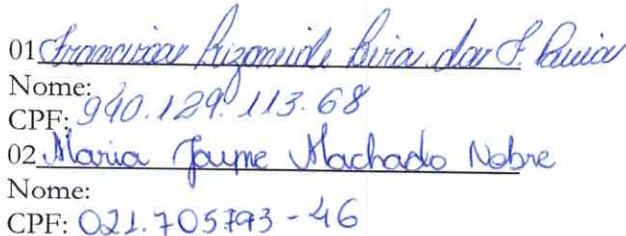 01 Francisca Lizoneide Lira da S. Paiva
Nome:
CPF: 940.129.113.68
02 Maria Jayne Machado Nobre
Nome:
CPF: 021.705793-46